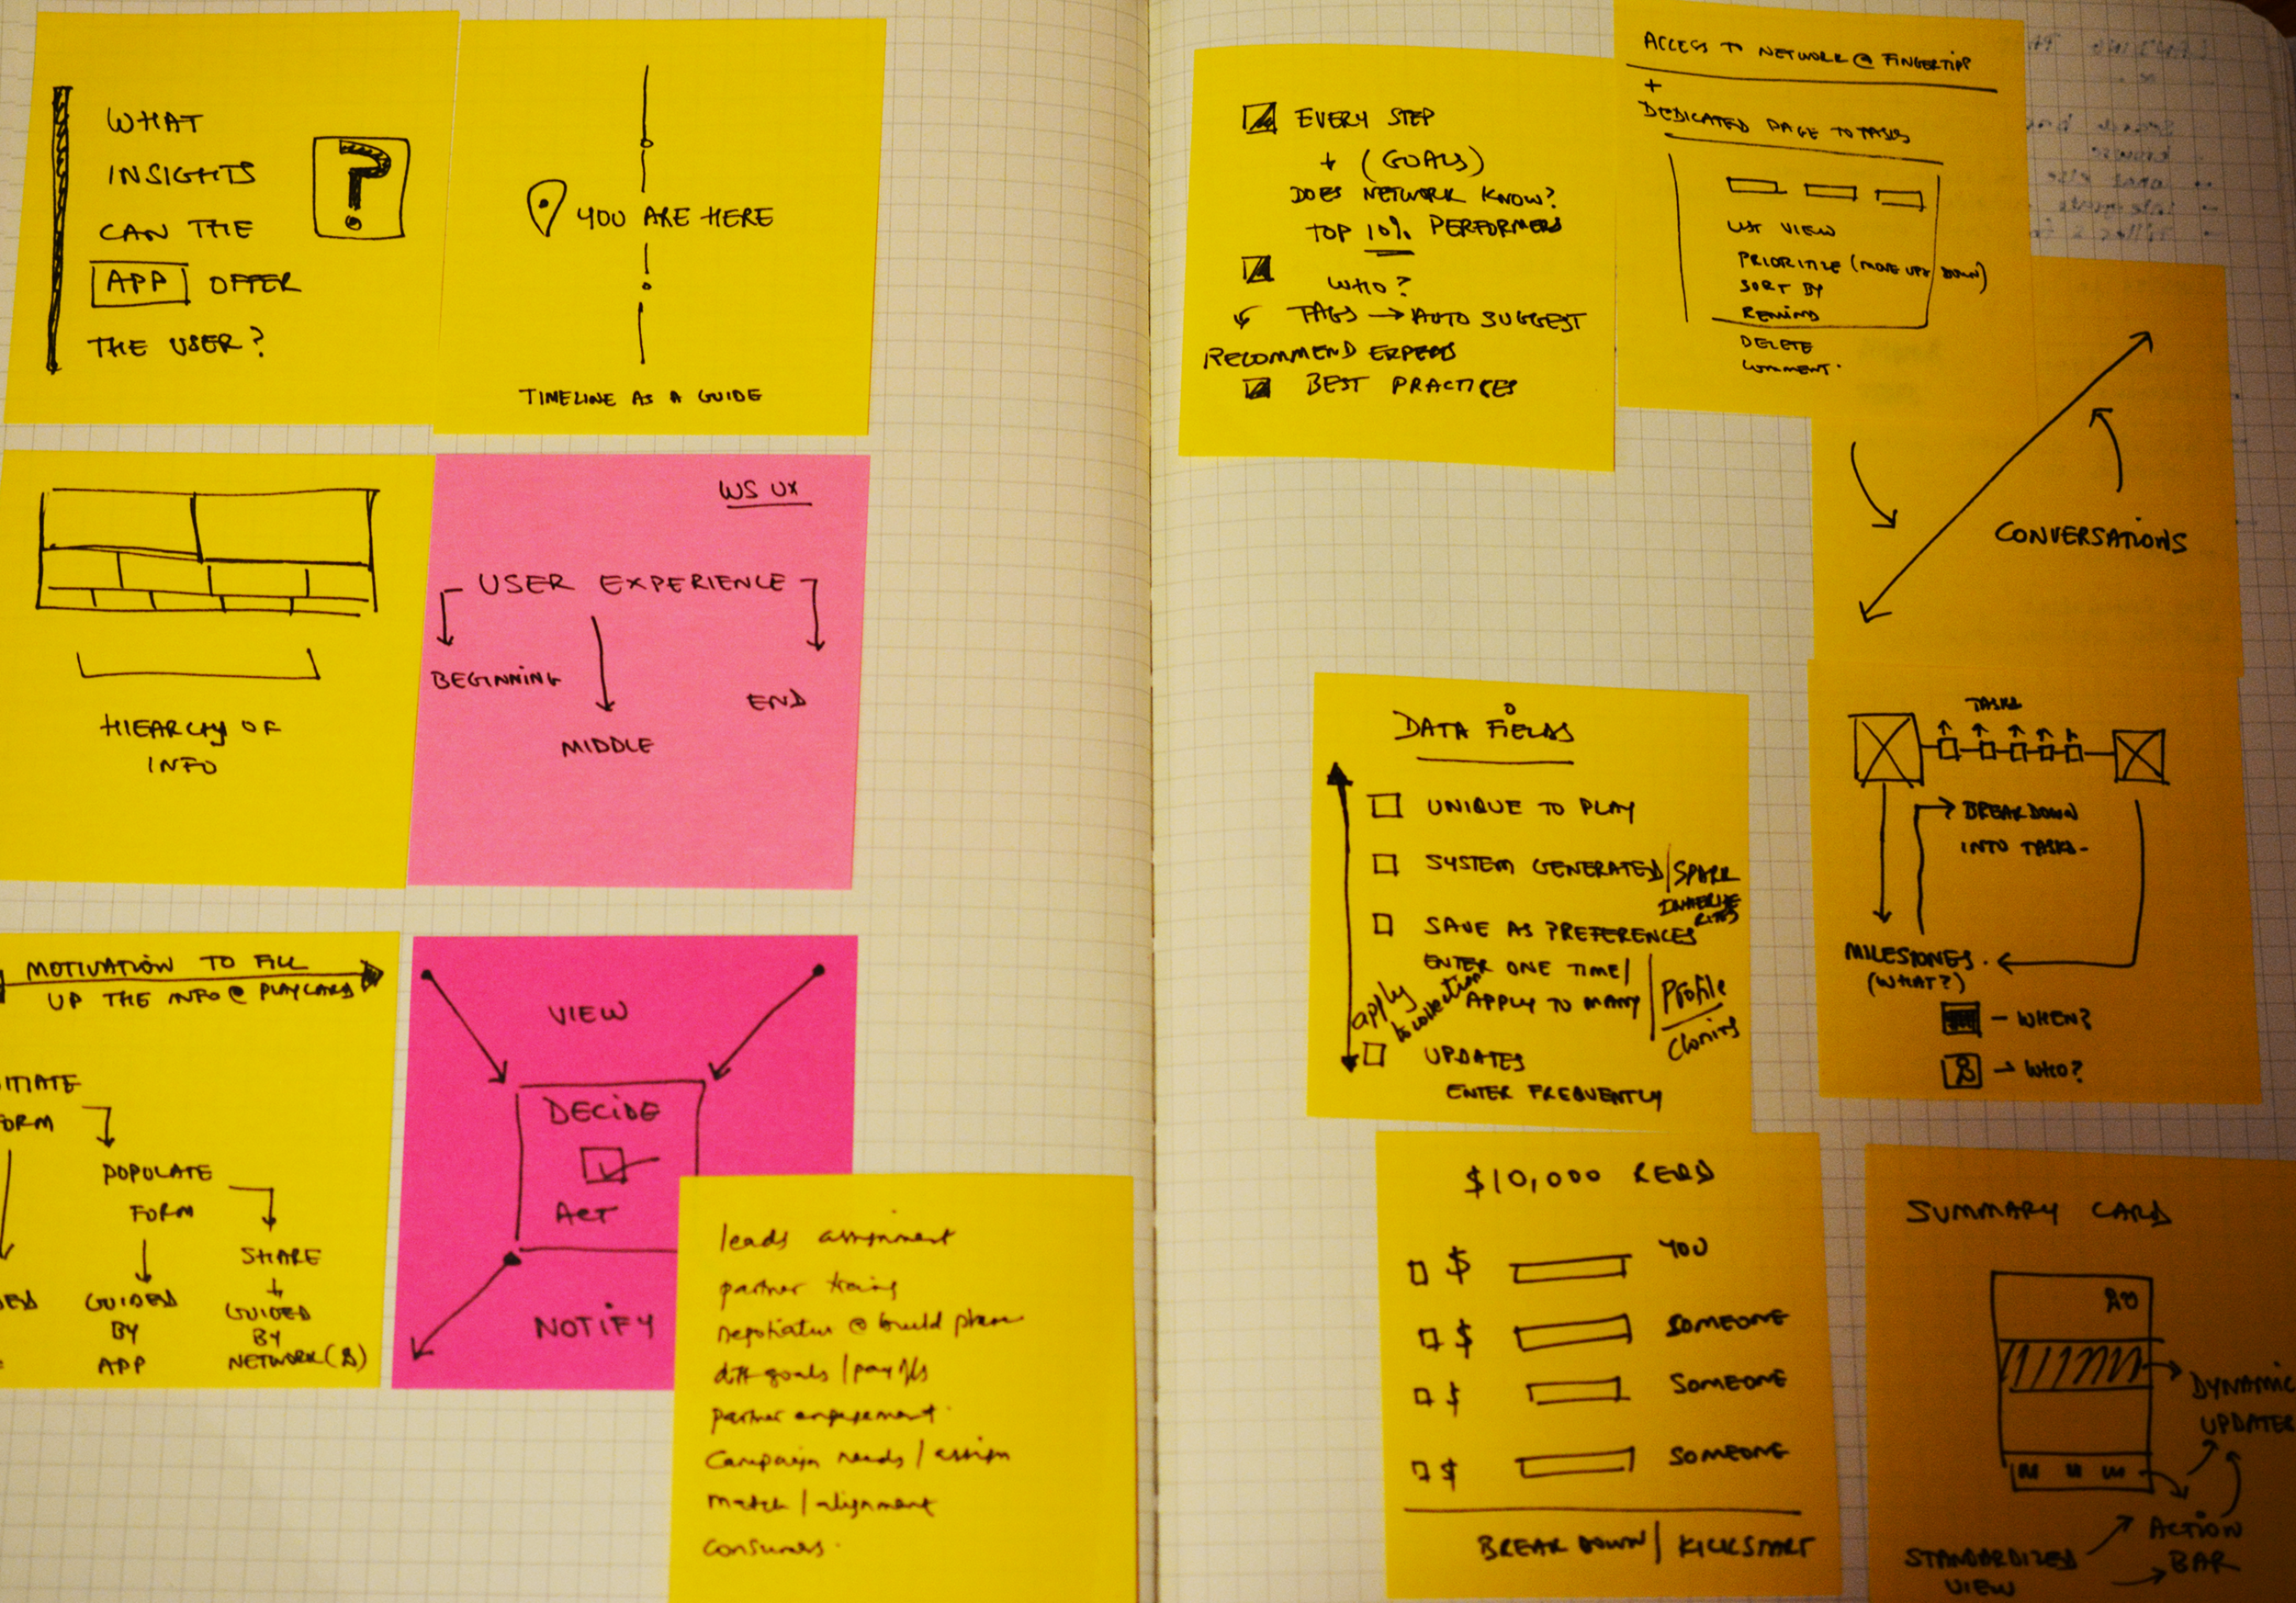 WHAT
INSIGHTS
CAN THE
APP OFFER
THE USER?
?
YOU ARE HERE
TIMELINE AS A GUIDE
HIERARCHY OF
INFO
WS UX
USER EXPERIENCE
BEGINNING
MIDDLE
END
MOTIVATION TO FILL
UP THE INFO @ PLAYCARD
ITIATE
FORM
POPULATE
FORM
SHARE
GUIDED
BY
APP
GUIDED
BY
NETWORK(S)
VIEW
DECIDE
ACT
NOTIFY
leads assignment
partner training
negotiation @ build phase
diff goals / payoffs
partner engagement
Campaign needs / assign
match / alignment
consumers
EVERY STEP
+ (GOALS)
DOES NETWORK KNOW?
TOP 10% PERFORMERS
WHO?
TAGS → AUTO SUGGEST
RECOMMEND EXPERTS
BEST PRACTICES
ACCESS TO NETWORK @ FINGERTIPS
+
DEDICATED PAGE TO TASKS
LIST VIEW
PRIORITIZE (MOVE UP/DOWN)
SORT BY
REMIND
DELETE
COMMENT.
CONVERSATIONS
DATA FIELDS
UNIQUE TO PLAY
SYSTEM GENERATED / SPARK
SAVE AS PREFERENCES
ENTER ONE TIME /
APPLY TO MANY / Profile
cloning
apply
to collection
UPDATES
ENTER FREQUENTLY
TASKS
BREAKDOWN
INTO TASKS-
MILESTONES.
(WHAT?)
- WHEN?
→ WHO?
$10,000 REQD
$ YOU
$ SOMEONE
$ SOMEONE
$ SOMEONE
BREAK DOWN / KICKSTART
SUMMARY CARD
DYNAMIC
UPDATES
ACTION
BAR
STANDARDIZED
VIEW